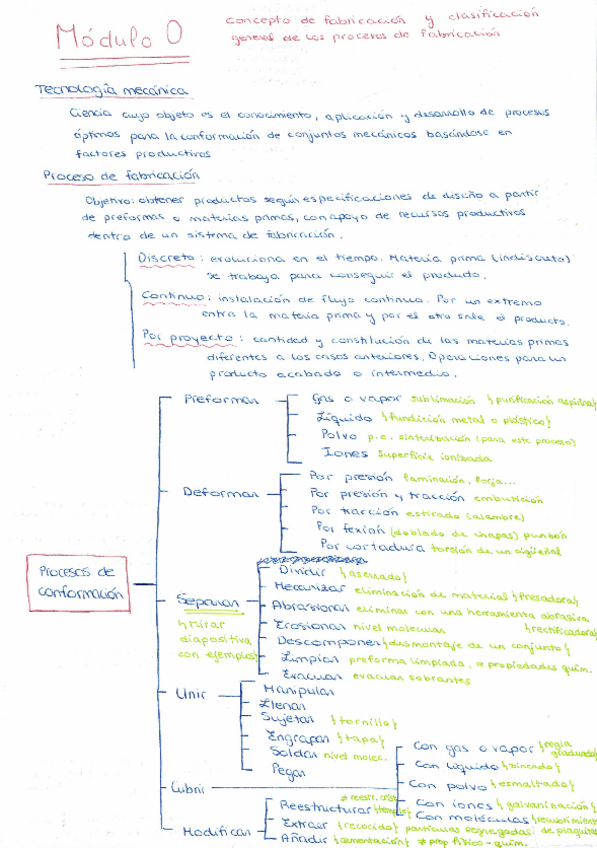 Módulo 0
concepto de fabricación y clasificación
general de los procesos de fabricación
Tecnología mecánica
Ciencia cuyo objeto es el conocimiento, aplicación y desarrollo de procesos
óptimos para la conformación de conjuntos mecánicos basándose en
factores productivos
Proceso de fabricación
Objetivo: obtener productos según especificaciones de diseño a partir
de preformas o materias primas, con apoyo de recursos productivos
dentro de un sistema de fabricación.
Discreto: evoluciona en el tiempo. Materia prima (indiscreto)
se trabaja para conseguir el producto.
Continuo: instalación de flujo continuo. Por un extremo
entra la materia prima y por el otro sale el producto.
Por proyecto: cantidad y constitución de las materias primas
diferentes a los casos anteriores. Operaciones para un
producto acabado o intermedio.
Procesos de
conformación
Preformar
Gas o vapor sublimación {purificación aspirina}
Líquido {fundición metal o plástico}
Polvo p.e. sinterización (para este proceso)
Iones superficie ionizada
Deformar
Por presión laminación, forja...
Por presión y tracción embutición
Por tracción estirado (alambre)
Por flexión (doblado de chapas) punzón
Por cortadura torsión de un cigüeñal
Separar
{Mirar
diapositiva
con ejemplos}
Dividir {aserrado}
Mecanizar eliminación de material {fresadora}
Abrasionar eliminar con una herramienta abrasiva
{rectificadora}
Erosionar nivel molecular
Descomponer {desmontaje de un conjunto}
Limpiar preforma limpiada, ≠ propiedades quím.
Evacuar evacuar sobrantes
Unir
Manipular
Llenar
Sujetar {tornillo}
Engrapar {tapa}
Soldar nivel molec.
Pegar
Cubrir
Con gas o vapor {regla
graduada}
Con líquido {zincado}
Con polvo {esmaltado}
Con iones {galvanización}
Con moléculas {recubrimiento
de plaquitas
Modificar
Reestructurar {temple}
≠ reestr. crist.
Extraer {recocido} partículas segregadas
Añadir {cementación} ≠ prop físico-quím.